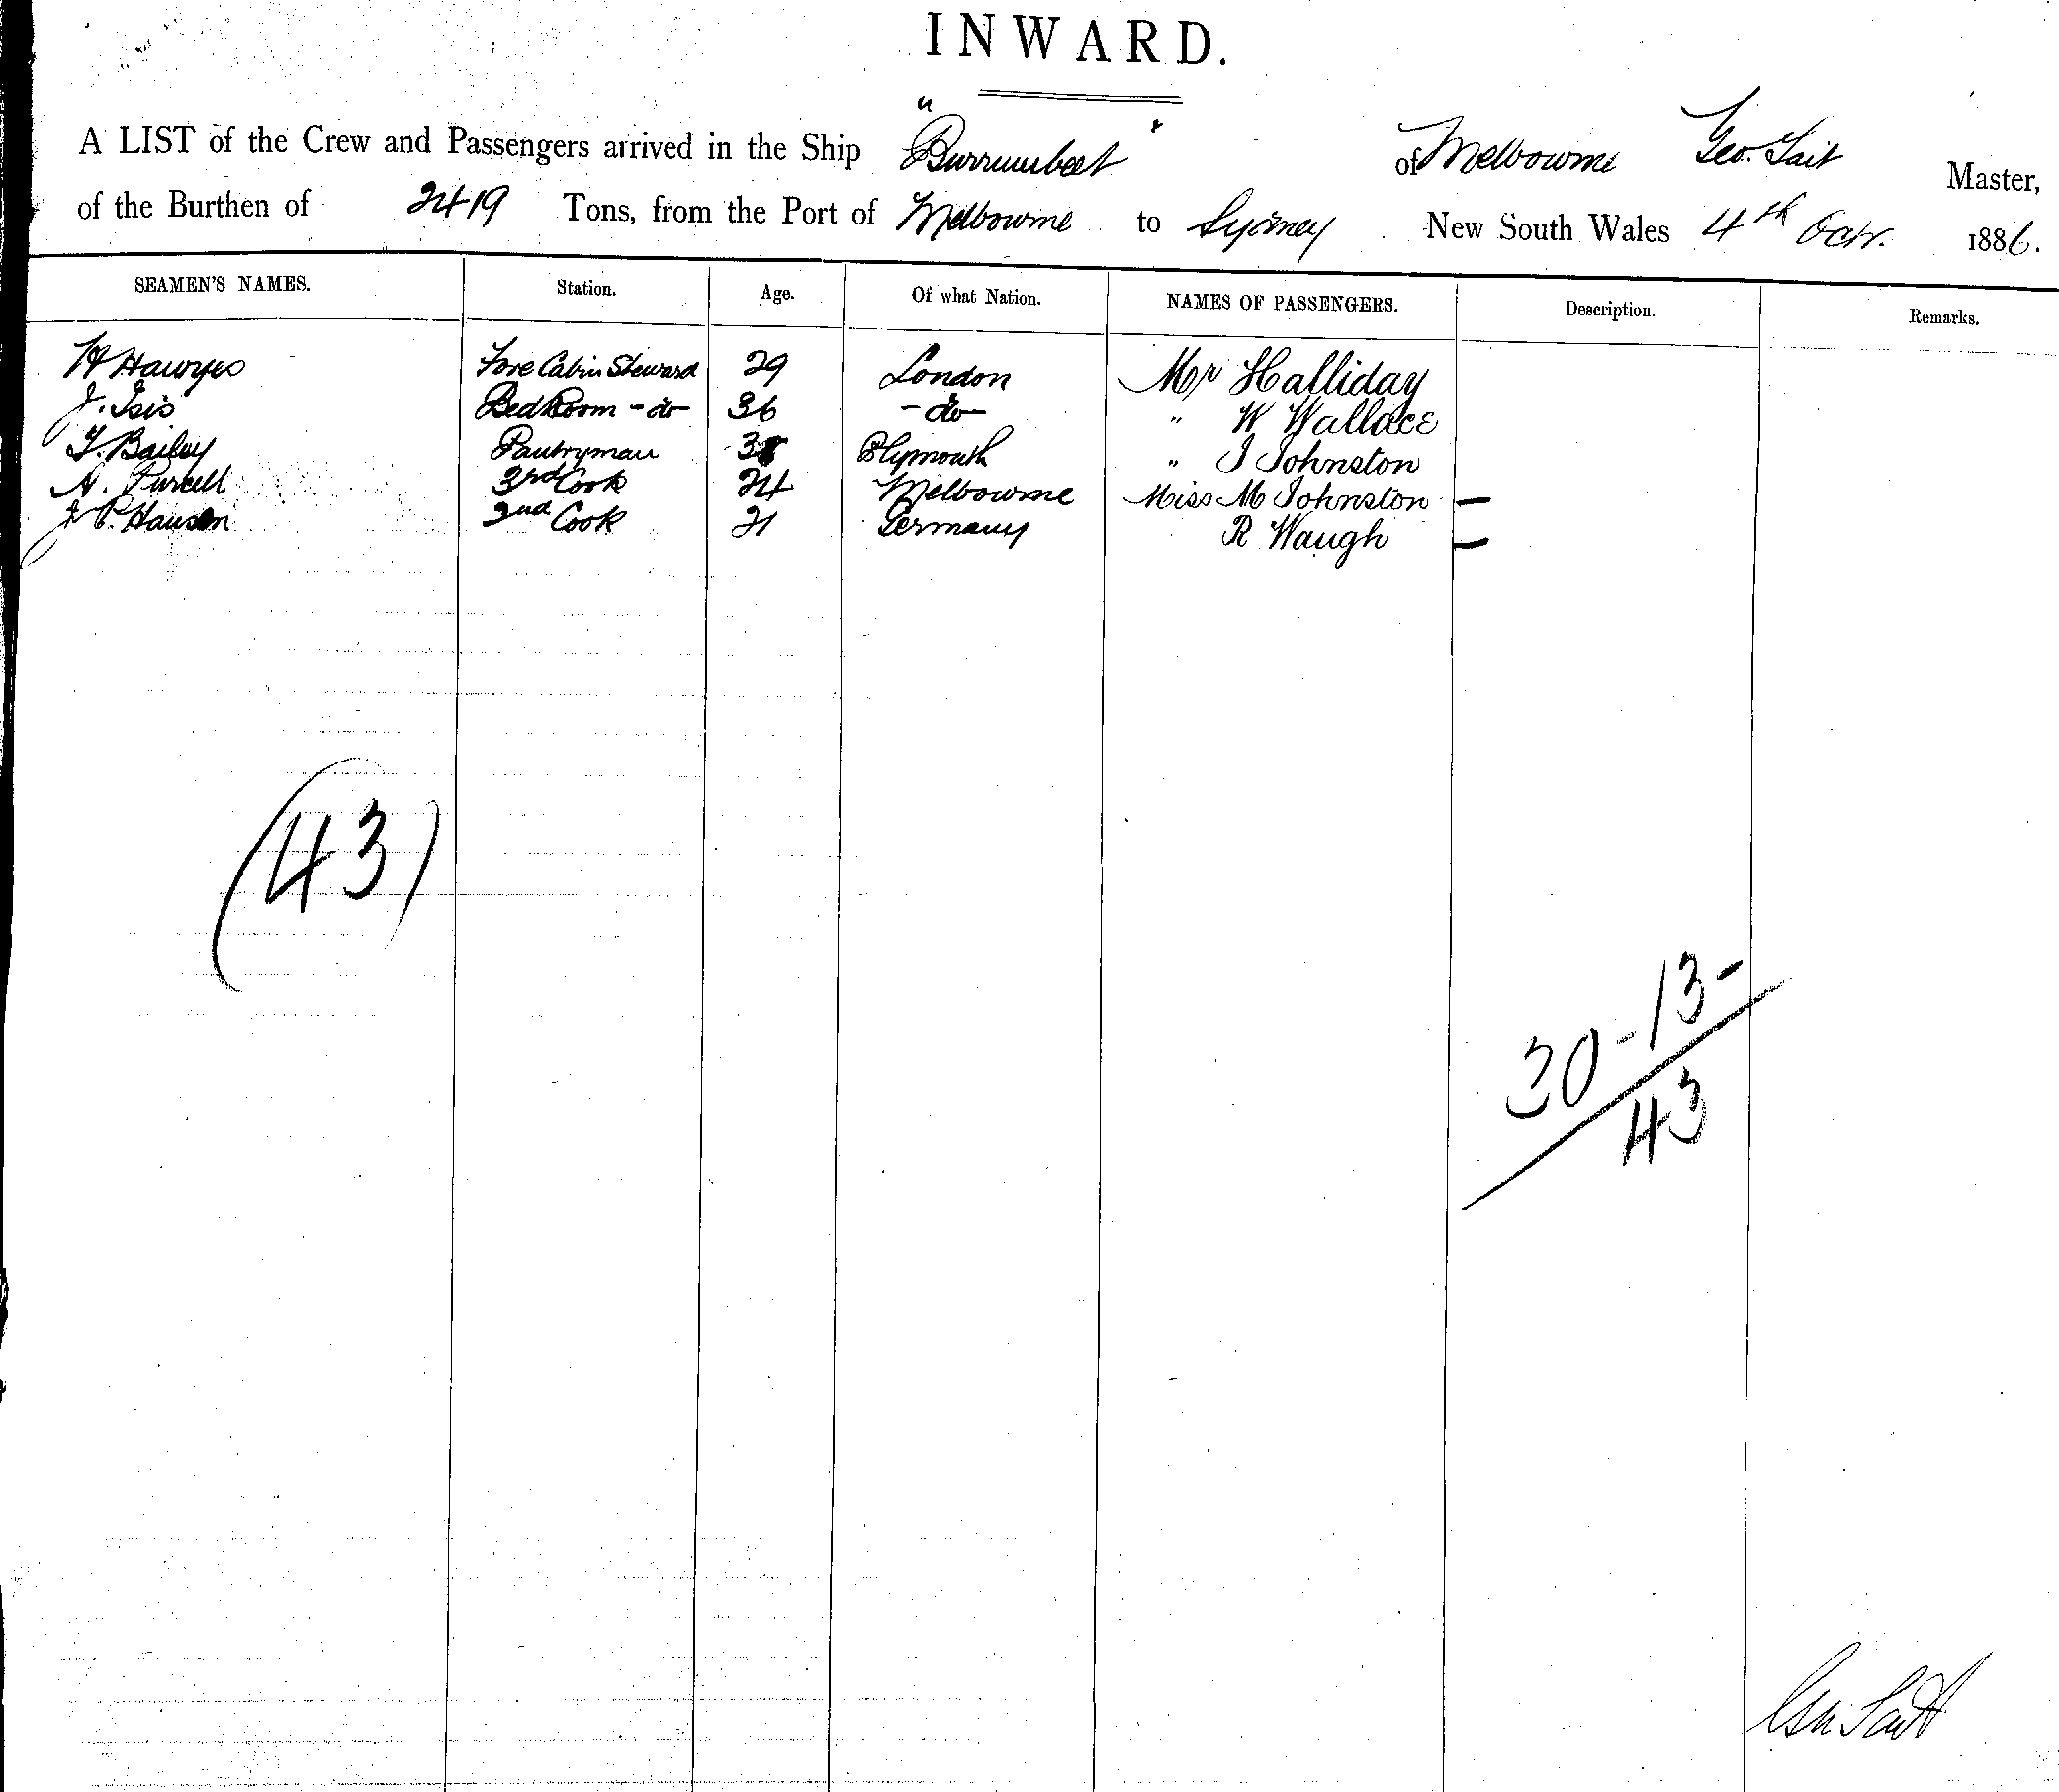 INWARD.
A LIST of the Crew and Passengers arrived in the Ship "Burrumbeet" of Melbourne Geo. Tait Master,
of the Burthen of 2419 Tons, from the Port of Melbourne to Sydney New South Wales 4th Octr. 1886.
SEAMEN'S NAMES. Station. Age. Of what Nation. NAMES OF PASSENGERS. Description. Remarks.
H Hawyes Fore Cabin Steward 29 London Mr Halliday
J. Isis Bed Room -do- 36 -do- " W Wallace
T. Bailey Pantryman Plymouth " J Johnston
A. Purcell 3rd Cook 24 Melbourne Miss M Johnston -
J P. Hansen 2nd Cook 21 Germany R Waugh -
(43)
30-13-
43
Geo Tait